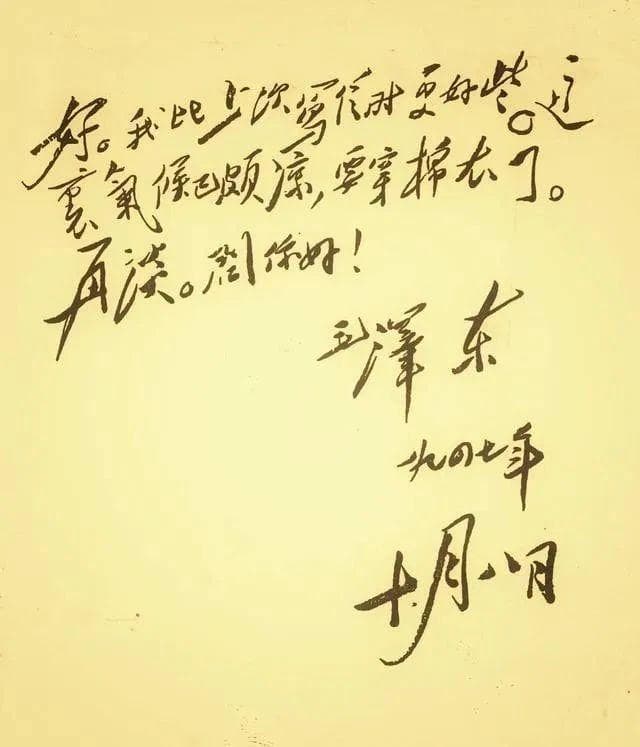 好。我比上次寫信时更好些。这
裏氣候已頗涼，要穿棉衣了。
再談。問你好！
毛澤東
一九四七年
十月八日